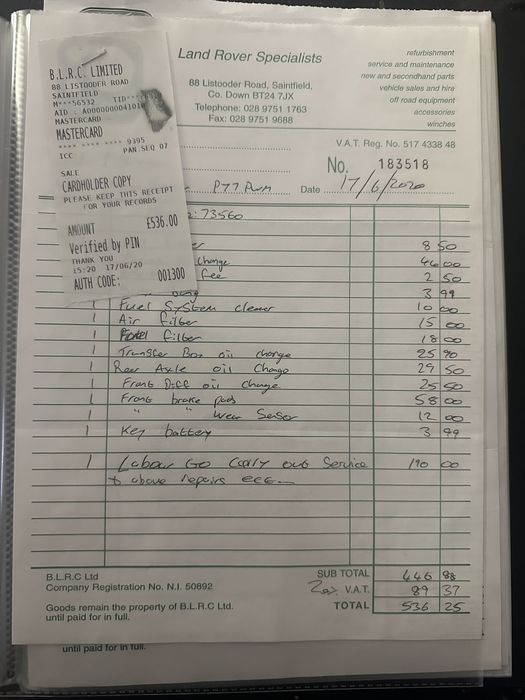 B.L.R.C. LIMITED
88 LISTOODER ROAD
SAINTFIELD
M***56532 TID
AID : A0000000041010
MASTERCARD
MASTERCARD
**** **** **** 9395
ICC PAN.SEQ 07
SALE
CARDHOLDER COPY
PLEASE KEEP THIS RECEIPT
FOR YOUR RECORDS
AMOUNT £536.00
Verified by PIN
THANK YOU
15:20 17/06/20
AUTH CODE: 001300
Land Rover Specialists
88 Listooder Road, Saintfield,
Co. Down BT24 7JX
Telephone: 028 9751 1763
Fax: 028 9751 9688
refurbishment
service and maintenance
new and secondhand parts
vehicle sales and hire
off road equipment
accessories
winches
V.A.T. Reg. No. 517 4338 48
No. 183518
Date 17/6/2020
: 73560
8 50
change 46 00
fee 2 50
3 99
1 Fuel System cleaner 10 00
1 Air filter 15 00
1 filter 18 00
1 Transfer Box oil change 25 90
1 Rear Axle oil change 29 50
1 Front Diff oil change 25 50
1 Front brake pads 58 00
1 " " wear Sensor 12 00
1 Key battery 3 99
1 Labour to carry out Service 190 00
+ above repairs ect
B.L.R.C Ltd
Company Registration No. N.I. 50892
Goods remain the property of B.L.R.C Ltd.
until paid for in full.
SUB TOTAL 446 88
20% V.A.T. 89 37
TOTAL 536 25
until paid for in full.